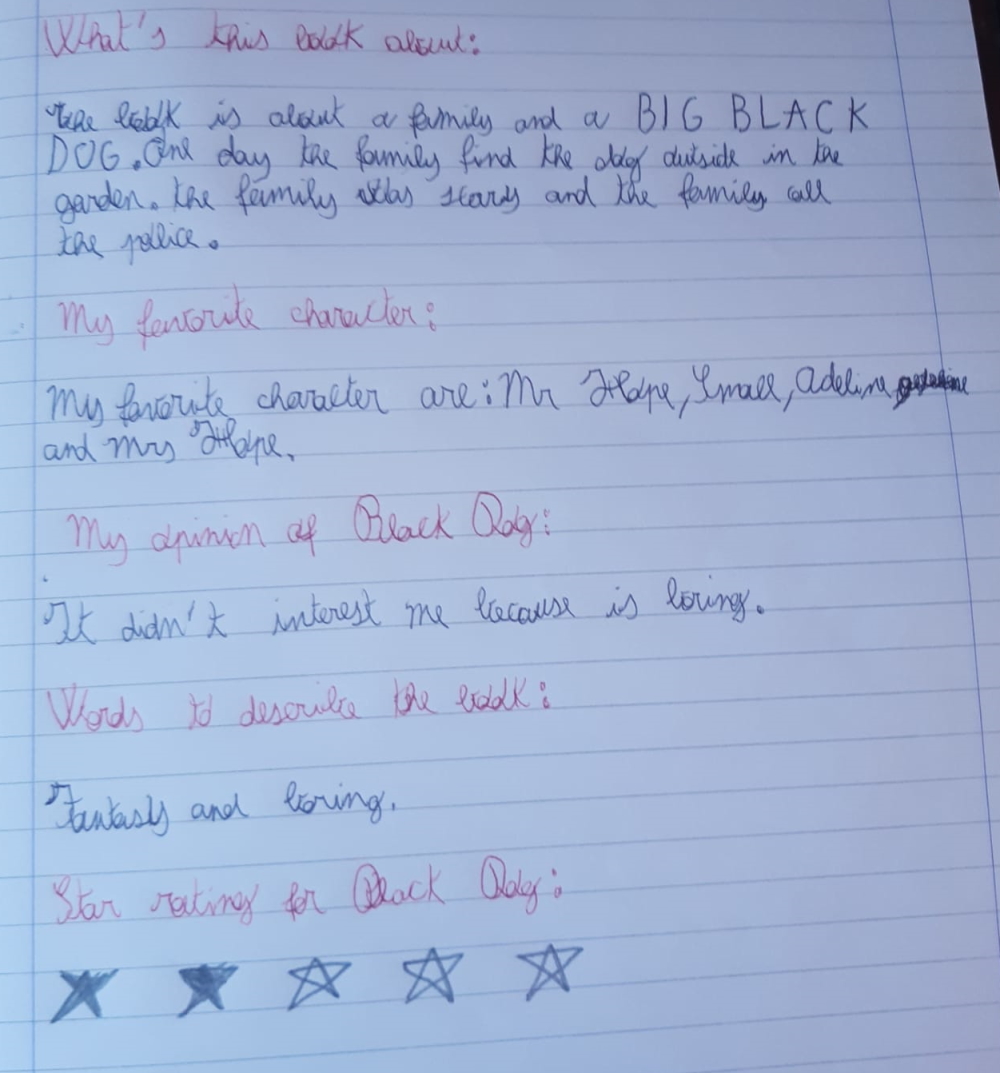 What's this book about:
The book is about a family and a BIG BLACK
DOG. One day the family find the dog outside in the
garden. the family was scary and the family call
the police.
My favorite character:
My favorite character are: Mr Hope, Small, Adeline
and Mrs Hope.
My opinion of Black Dog:
It didn't interest me because is boring.
Words to describe the book:
Fantasy and boring.
Star rating for Black Dog: